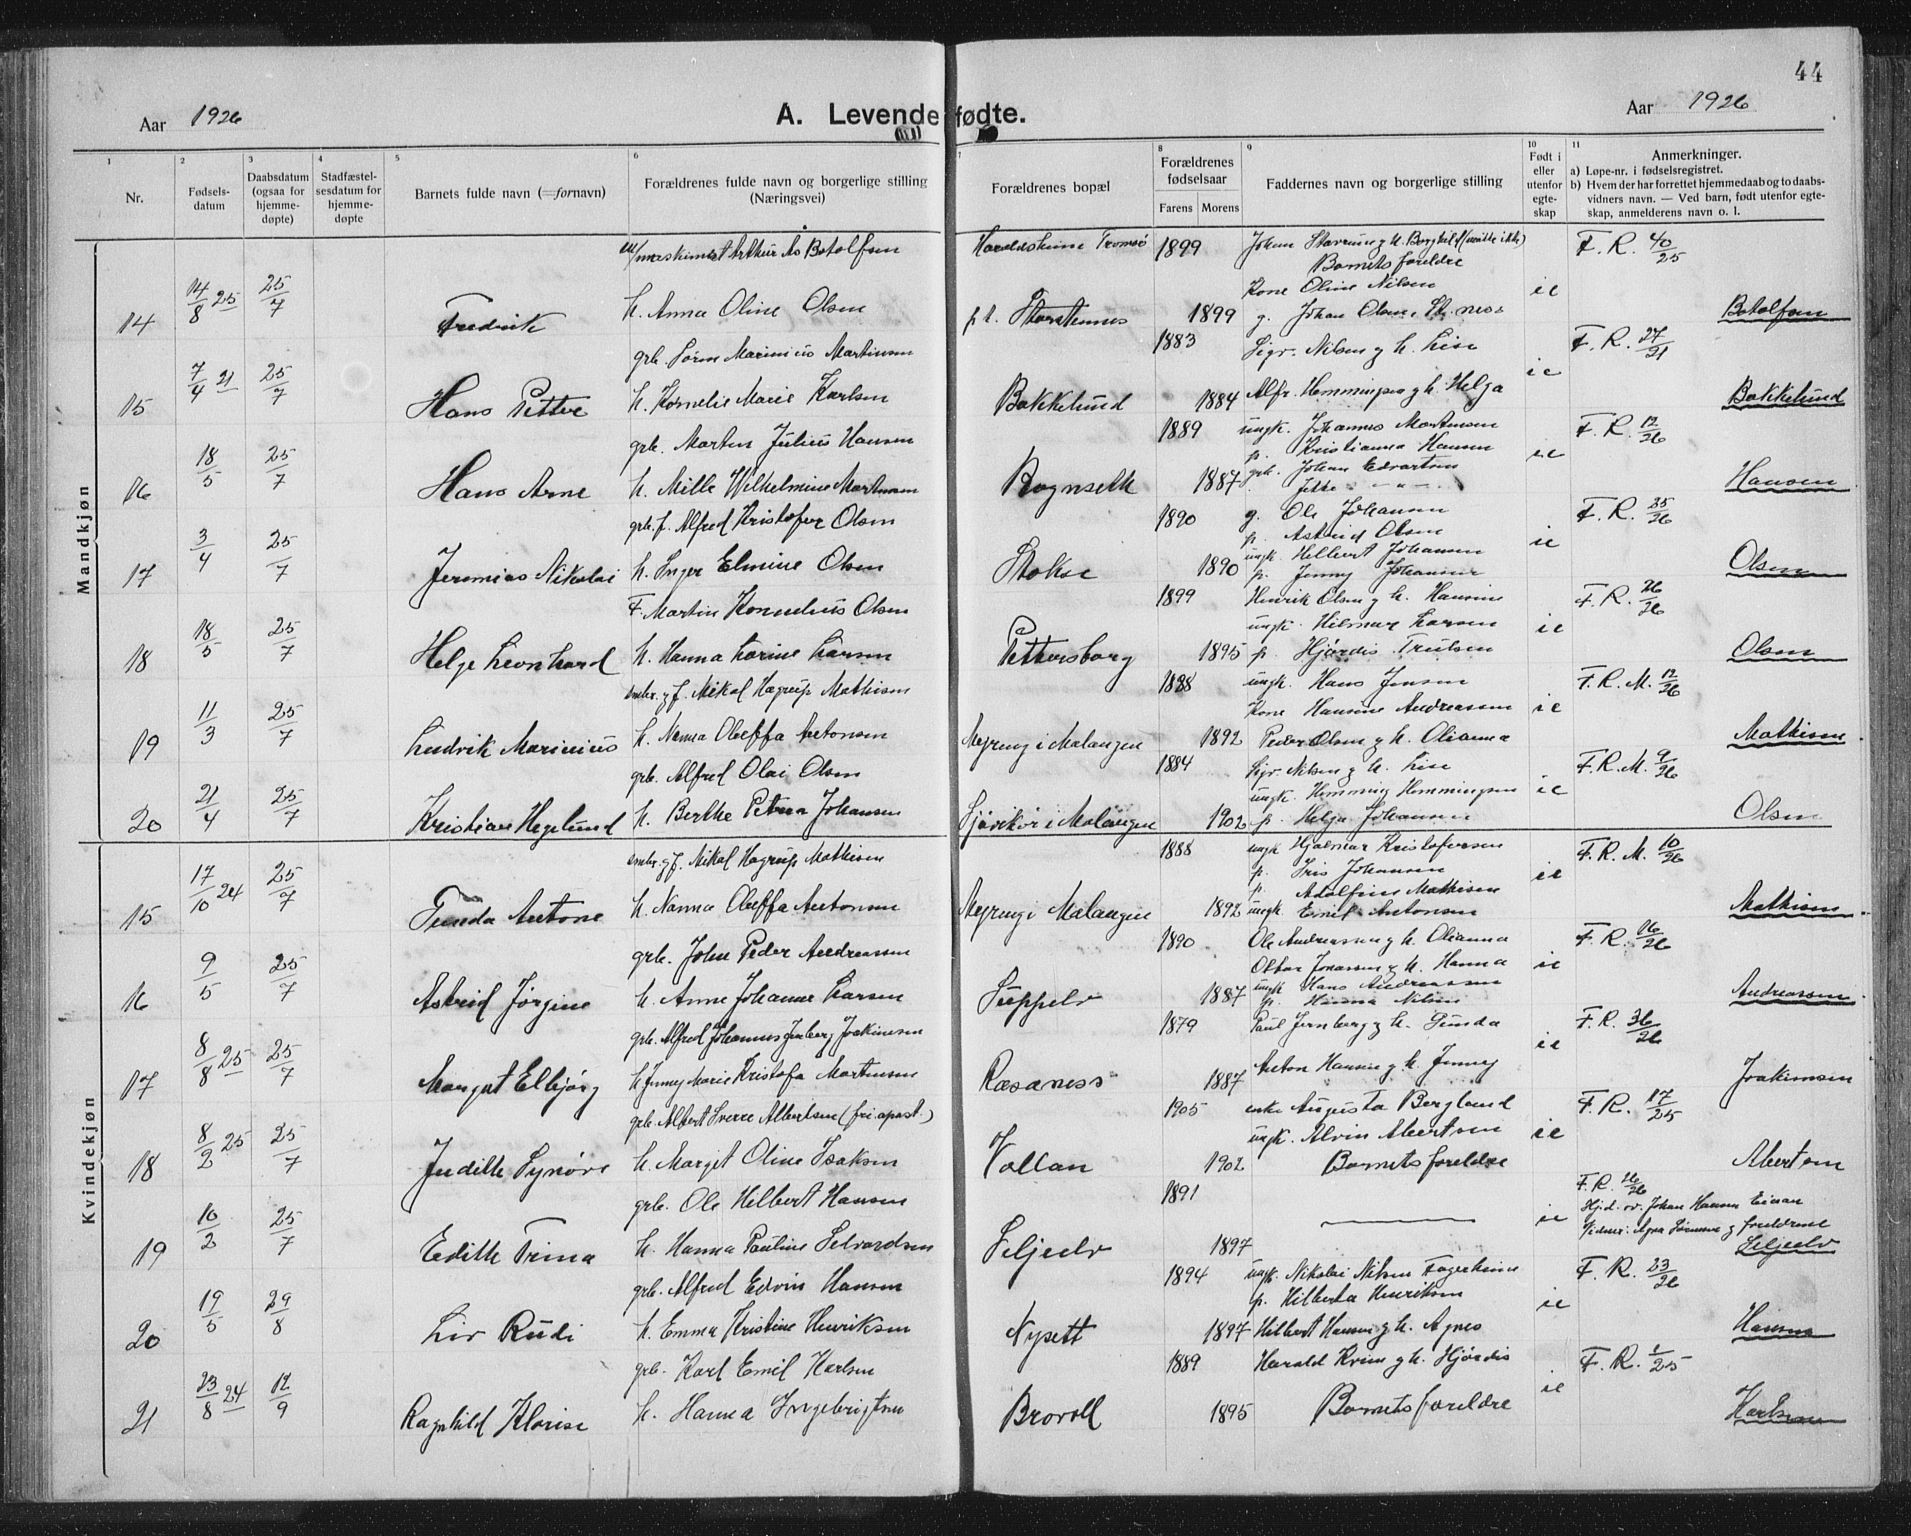 44
Aar 1926
A. Levendefødte.
Aar 1926
1 2 3 4 5 6 7 8 9 10 11
Nr.
Fødselsdatum
Daabsdatum (ogsaa for hjemmedøpte)
Stadfæstelsesdatum for hjemmedøpte
Barnets fulde navn (=fornavn)
Forældrenes fulde navn og borgerlige stilling (Næringsvei)
Forældrenes bopæl
Forældrenes fødselsaar
Farens Morens
Faddernes navn og borgerlige stilling
Født i eller utenfor egteskap
Anmerkninger.
a) Løpe-nr. i fødselsregistret.
b) Hvem der har forrettet hjemmedaab og to daabsvidners navn. — Ved barn, født utenfor egteskap, anmelderens navn o. l.
Mandkjøn
Haroldsheim Tromsø 1899 F. R. 40/25
Barnets foreldre
Kone Oline Nilsen ie
14 14/8 25 25/7 Fredrik h. Anna Oline Olsen 1899 g. Johan Olsen Botolfsen
grb. Søren Marinius Martinsen 1883 Sigv. Nilsen g h. Lise ie F. R. 27/21
15 7/4 21 25/7 Hans Petter h. Kornelie Marie Karlsen Bakkelund 1884 Alfr. Hemmingsen g h. Helga Bakkelund
grb. Morten Julius Hansen 1889 ungk. Johannes Mortensen F. R. 12/26
p. Kristianna Hansen ie
16 18/5 25/7 Hans Arne h. Mille Wilhelmine Martinsen Rognseth 1887 grb. Johan Edvartsen Hansen
grb. f. Alfred Kristofer Olsen 1890 g. Ole Johansen F. R. 25/26
p. Astrid Olsen ie
17 3/4 25/7 Jeremias Nikolai h. Inger Elmine Olsen Stokse 1890 ungk. Helbert Johansen Olsen
p. Jenny Johansen
F. Martin Kornelius Olsen 1899 Henrik Olsen g h. Hansine F. R. 26/26
ungk. Hilmar Larsen ie
18 18/5 25/7 Helge Leonhard h. Hanna Larine Larsen Pettersborg 1895 p. Hjørdis Trulsen Olsen
smbr. g f. Mikal Hagrup Mathisen 1888 ungk. Hans Jensen F. R. M. 12/26
Kone Hansine Andreassen ie
19 11/3 25/7 Ludvik Marinius h. Nanna Oleffa Antonsen Meyreng i Malangen 1892 Peder Olsen g h. Olianna Mathisen
grb. Alfred Olai Olsen 1884 Sigv. Nilsen g h. Lise F. R. M. 9/26
ungk. Hemming Hemmingsen ie
20 21/4 25/7 Kristian Hegelund h. Berthe Petra Johansen Sjøvikør i Malangen 1902 p. Helga Johansen Olsen
Kvindekjøn
smbr. g f. Mikal Hagrup Mathisen 1888 ungk Hjalmar Kristofersen F. R. M. 10/26
p. Iris Johansen ie
p. Adolfine Mathisen
15 17/10 24 25/7 Tunda Antone h. Nanna Oleffa Antonsen Meyreng i Malangen 1892 ungk Emil Antonsen Mathisen
grb. John Peder Andreassen 1890 Ole Andreassen g h. Olianna F. R. 16/26
Ottar Jonassen g h. Hanna ie
ungk Hans Andreassen
16 9/5 25/7 Astrid Jørgine h. Anne Johanne Larsen Suppelv 1887 p. Hanna Nilsen Andreassen
grb. Alfred Johannes Jenberg Joakimsen 1879 Paul Jernberg g h. Tunda F. R. 36/26
ie
17 8/8 25 25/7 Margot Elbjørg h. Jenny Marie Kristofa Martinsen Ræsaness 1887 Anton Hansen g h. Jenny Joakimsen
grb. Albert Sverre Albertsen (fri. apost.) 1905 enke Augusta Berglund F. R. 17/25
ungk. Alvin Albertsen ie
18 8/2 25 25/7 Judith Synøve h. Marget Oline Isaksen Vollan 1902 Barnets foreldre Albertsen
grb. Ole Helbert Hansen 1891 F. R. 16/26
ie
19 10/2 25/7 Edith Trina h. Hanna Pauline Selvardsen Seljeelv 1897 Seljeelv
grb. Alfred Edvin Hansen 1894 ungk. Nikolai Nilsen Fagerheim F. R. 23/26
p. Hilberta Henriksen ie
20 19/5 29/8 Liv Rudi h. Emma Kristine Henriksen Nysett 1897 Hilbert Hansen g h. Agnes Hansen
grb. Karl Emil Karlsen 1889 Harald Krim g h. Hjørdis F. R. 1/25
ie
21 23/8 24 12/9 Ragnhild Klarise h. Hanna Ingebrigtsen Brovoll 1895 Barnets foreldre Karlsen